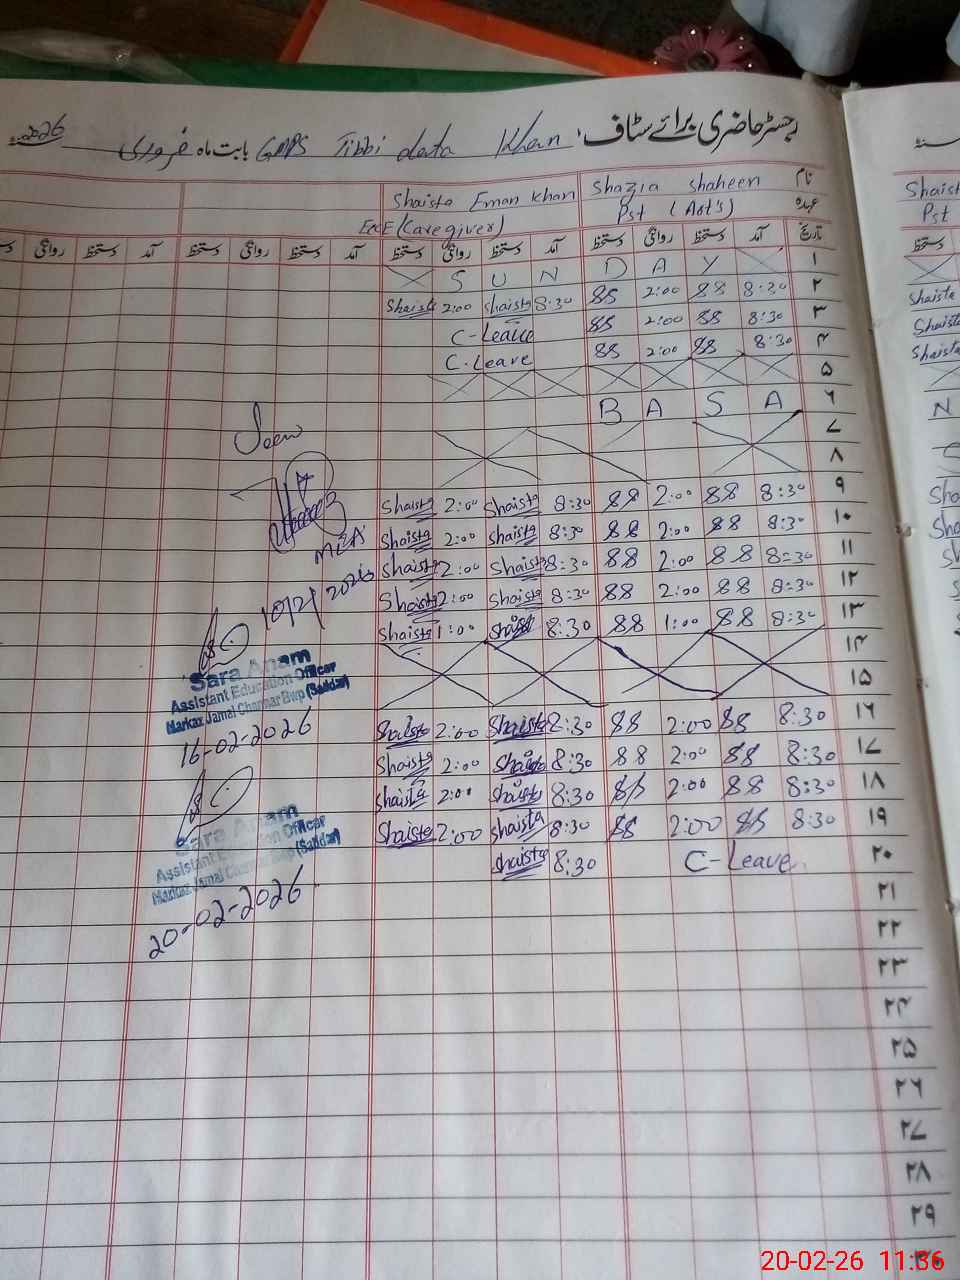 رجسٹر حاضری برائے سٹاف، GMPS Tibbi data Khan بابت ماہ فروری 2026
نام Shazia Shaheen Shaista Eman Khan
عہدہ Pst (Art's) EccE (Caregiver)
تاریخ آمد دستخط روانگی دستخط آمد دستخط روانگی دستخط آمد دستخط روانگی دستخط آمد دستخط روانگی
۱ S U N D A Y
۲ 8:30 SS 2:00 SS 8:30 Shaista 2:00 Shaista
۳ 8:30 SS 2:00 SS C-Leave
۴ 8:30 SS 2:00 SS C.Leave
۵
۶ B A S A
۷
۸
۹ 8:30 SS 2:00 SS 8:30 Shaista 2:00 Shaista
۱۰ 8:30 SS 2:00 SS 8:30 Shaista 2:00 Shaista
۱۱ 8:30 SS 2:00 SS 8:30 Shaista 2:00 Shaista
۱۲ 8:30 SS 2:00 SS 8:30 Shaista 2:00 Shaista
۱۳ 8:30 SS 1:00 SS 8:30 Shaista 1:00 Shaista
۱۴
۱۵
۱۶ 8:30 SS 2:00 SS 8:30 Shaista 2:00 Shaista
۱۷ 8:30 SS 2:00 SS 8:30 Shaista 2:00 Shaista
۱۸ 8:30 SS 2:00 SS 8:30 Shaista 2:00 Shaista
۱۹ 8:30 SS 2:00 SS 8:30 Shaista 2:00 Shaista
۲۰ C-Leave 8:30 Shaista
۲۱
۲۲
۲۳
۲۴
۲۵
۲۶
۲۷
۲۸
۲۹
۳۰
Seen
MEA
10/2/2026
Sara Anam
Assistant Education Officer
Markaz Jamal Channar Bwp (Saddar)
16-02-2026
Sara Anam
Assistant Education Officer
Markaz Jamal Channar Bwp (Saddar)
20-02-2026
Pst
دستخط
Shaista
Shaista
Shaista
N
20-02-26 11:36